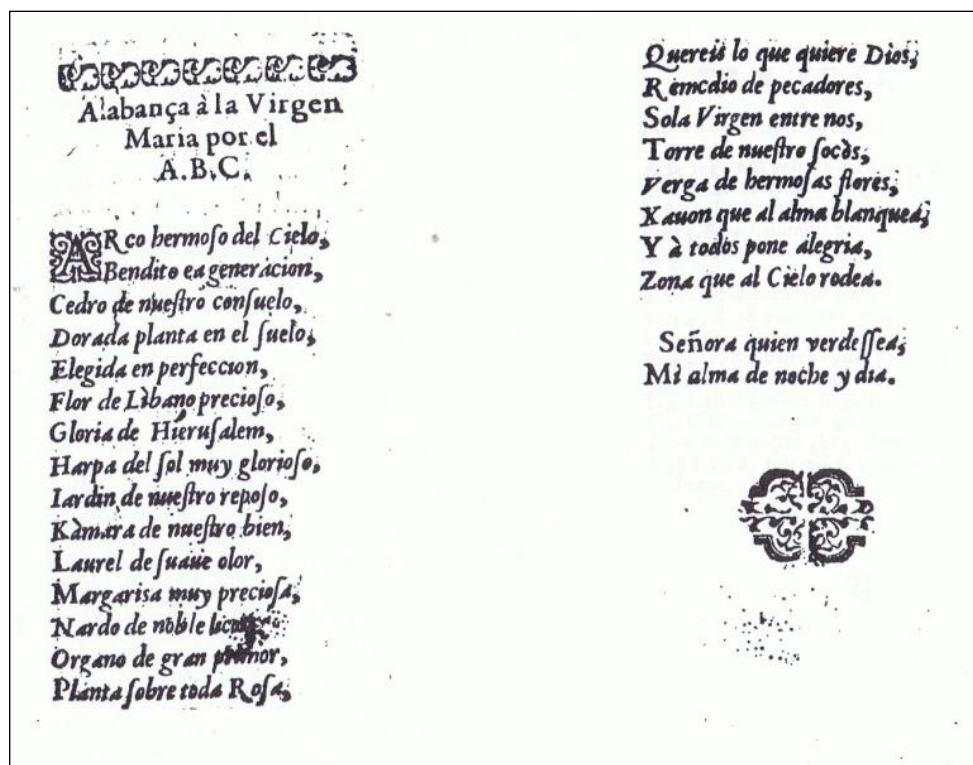 Alabança à la Virgen
Maria por el
A.B.C.
ARco hermoſo del Cielo,
Bendito ea generacion,
Cedro de nueſtro conſuelo,
Dorada planta en el ſuelo,
Elegida en perfeccion,
Flor de Lìbano precioſo,
Gloria de Hieruſalem,
Harpa del ſol muy glorioſo,
Iardin de nueſtro repoſo,
Kàmara de nueſtro bien,
Laurel de ſuaue olor,
Margarisa muy precioſa,
Nardo de noble
Organo de gran primor,
Planta ſobre toda Roſa,
Quereis lo que quiere Dios,
Remedio de pecadores,
Sola Virgen entre nos,
Torre de nueſtro ſocòs,
Verga de hermoſas flores,
Xauon que al alma blanquea,
Y à todos pone alegria,
Zona que al Cielo rodea.
Señora quien verdeſſea,
Mi alma de noche y dia.